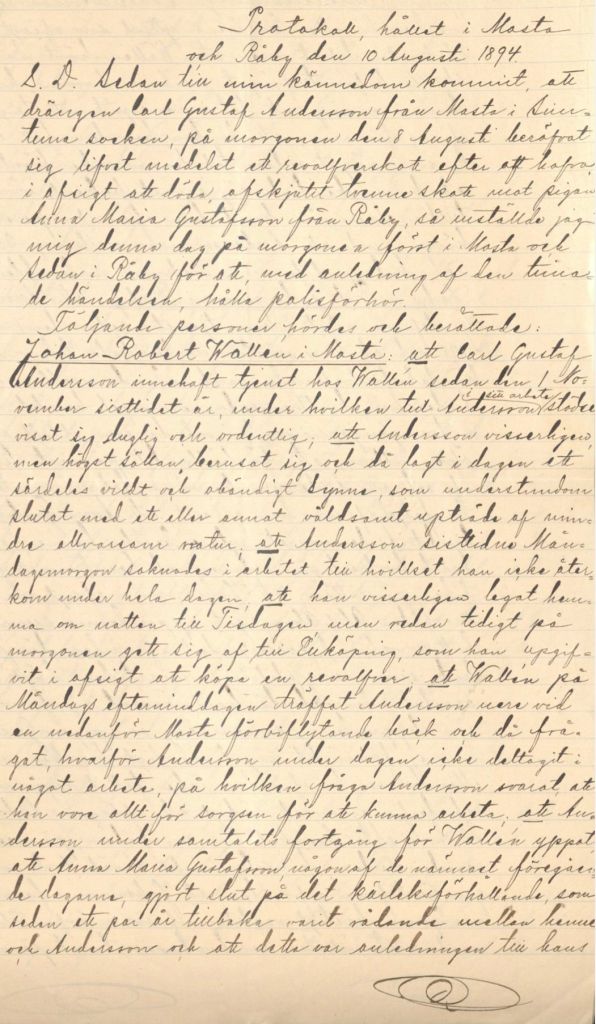 Protokoll, hållet i Mosta
och Råby den 10 Augusti 1894.
S. D. Sedan till min kännedom kommit, att
drängen Carl Gustaf Andersson från Mosta i Sim-
tuna socken, på morgonen den 8 Augusti beröfvat
sig lifvet medelst ett revolfverskott efter att hafva
i afsigt att döda, afskjutit tvenne skott mot pigan
Anna Maria Gustafsson från Råby, så inställde jag
mig denna dag på morgonen först i Mosta och
sedan i Råby för att, med anledning af den tima-
de händelsen, hålla polisförhör.
Följande personer hördes och berättade:
Johan Robert Wallén i Mosta: att Carl Gustaf
Andersson innehaft tjenst hos Wallén sedan den 1 No-
vember sistlidet år, under hvilken tid Andersson i sitt arbete städse
visat sig duglig och ordentlig; att Andersson visserligen,
men högst sällan, berusat sig och då lagt i dagen ett
särdeles vildt och obändigt lynne, som understundom
slutat med ett eller annat våldsamt uppträde af min-
dre allvarsam natur; att Andersson sistlidne Mån-
dagsmorgon saknades i arbetet till hvilket han icke åter-
kom under hela dagen, att han visserligen legat hem-
ma om natten till Tisdagen men redan tidigt på
morgonen gett sig af till Enköping, som han uppgif-
vit i afsigt att köpa en revolfver, att Wallén på
Måndags eftermiddagen träffat Andersson nere vid
en nedanför Mosta förbiflytande bäck och då frå-
gat, hvarför Andersson under dagen icke deltagit i
något arbete, på hvilken fråga Andersson svarat, att
han vore allt för sorgsen för att kunna arbeta; att An-
dersson under samtalets fortgång för Wallén yppat
att Anna Maria Gustafsson någon af de närmast föregåen-
de dagarne, gjort slut på det kärleksförhållande, som
sedan ett par år tillbaka varit rådande mellan henne
och Andersson och att detta var anledningen till hans